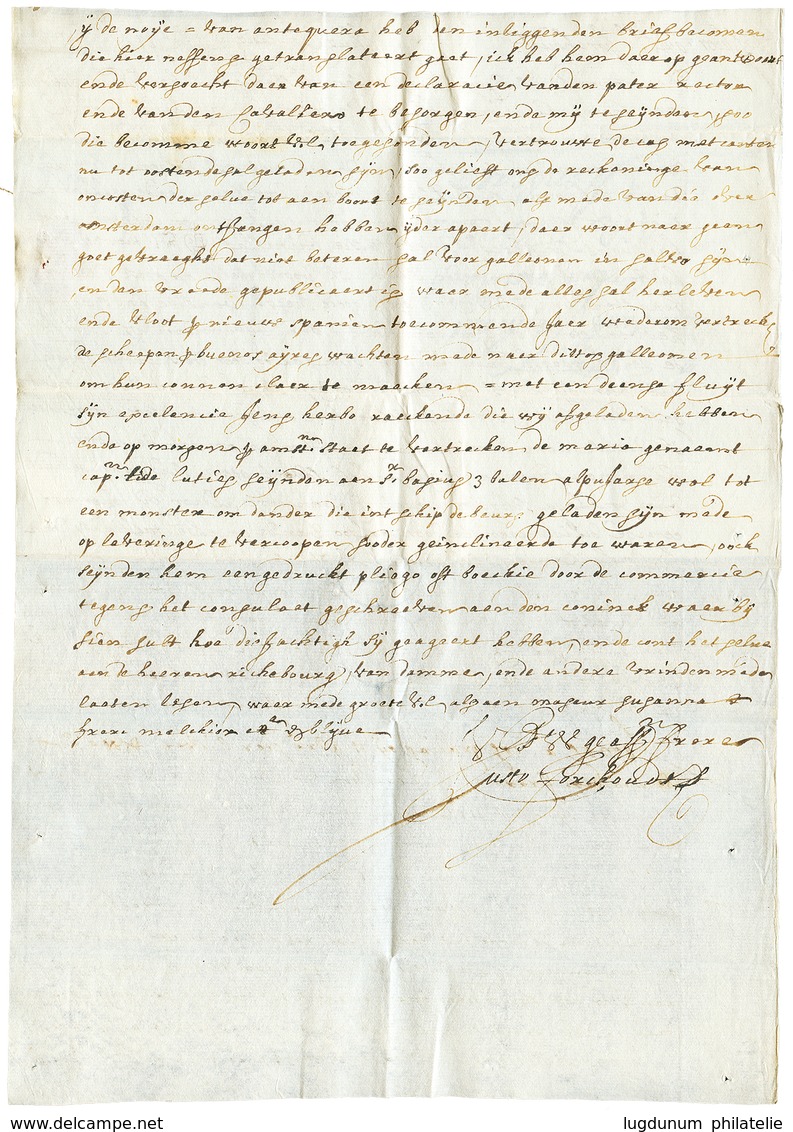 ij de noije = van antequera heb den inliggenden brief becomen
die hier neffens getranslateert gaet, ick heb hem daer op geantwoort
ende versocht daer van een declaracie vanden pater rector
ende van den te besorgen, ende mij te seijnden, soo
die becomme wort UL toegesonden, vertrouwe de cas met
nu tot oostende sal geladen sijn, soo gelieft ons de reckeninge van
oncosten der selve tot aen boort te seijnden als mede van die over
amsterdam ontfangen hebben ijder apaert, daer wort naer geen
goet gevraeght dat niet beteren sal voor galleonen in salvo sijn
en den vrede gepubliceert is waer mede alles sal herleven
ende vloot p nieuw spanien toecommende Jaer wederom vertrecke
de scheepen p buenos ayres wachten mede naer dittos galleonen
om hun connen claer te maecken = met een deense fluijt
sijn excelencie Jens raeckende die wij afgeladen hebben
ende op morgen p amst. staet te vertrecken de maria genaemt
cap. seijnden aen Sr. basius 3 balen wol tot
een monster om dander die int schip de beurs geladen sijn mede
op leveringe te vercoopen sooder geinclineerde toe waren, oock
seijnden hem een gedruckt pliego oft boeckie door de commercie
tegens het consulaet geschreven aen den coninck waer bij
sien sult hoe sij geageert hebben, ende cont het selve
aen de heeren richebourg, van damme, ende andere vrinden mede
laeten lesen, waer mede groete UL als aen maseur susanna
frere melchior etc. verblijve
frere
Justo Forchoudt
www.delcampe.net
lugdunum philatelie